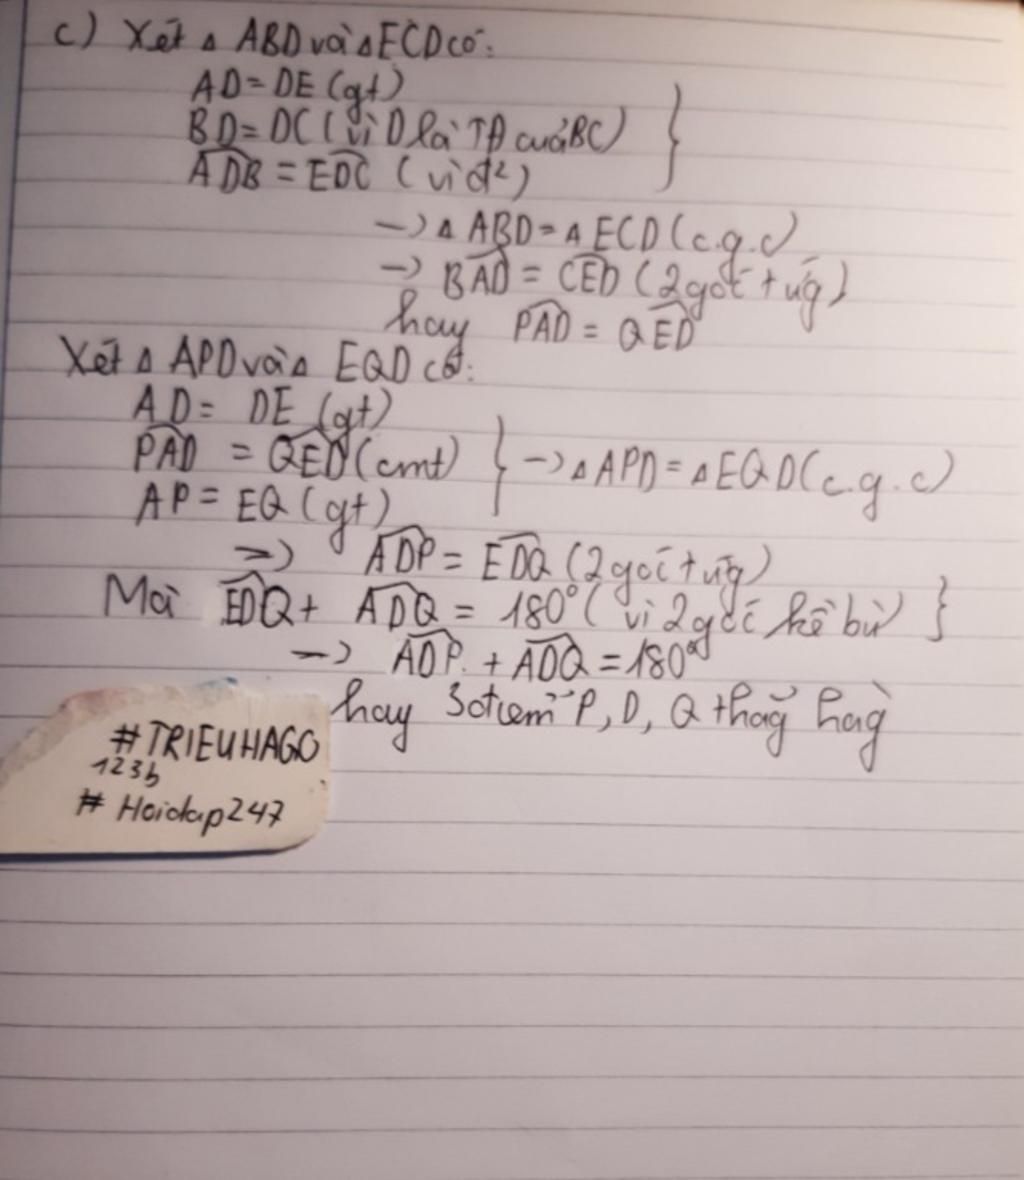 c) Xét Δ ABD và Δ ECD có:
AD = DE (gt)
BD = DC (vì D là TĐ của BC)
ADB = EDC (vì đ²)
→ Δ ABD = Δ ECD (c.g.c)
→ BAD = CED (2 góc t ứg)
hay PAD = QED
Xét Δ APD và Δ EQD có:
AD = DE (gt)
PAD = QED (cmt)
AP = EQ (gt)
→ Δ APD = Δ EQD (c.g.c)
=> ADP = EDQ (2 góc t ứg)
Mà EDQ + ADQ = 180° (vì 2 góc kề bù)
→ ADP + ADQ = 180°
hay 3 điểm P, D, Q thẳg hàg
#TRIEUHAGO
123b
# Hoidap247